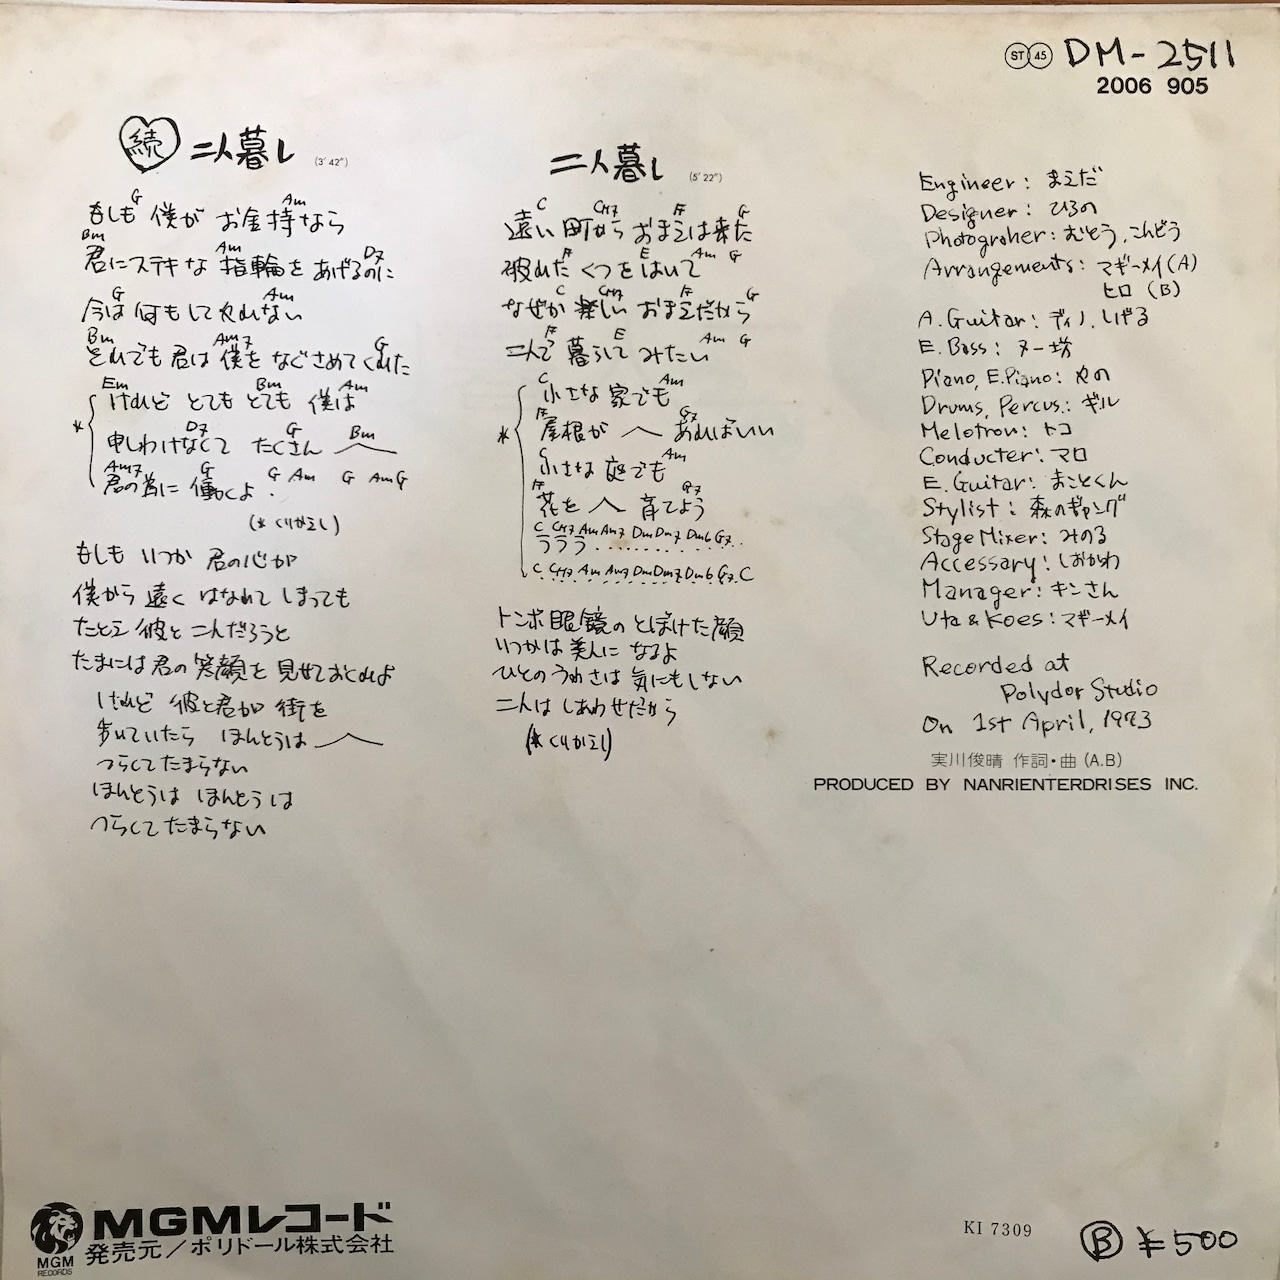 ST 45 DM-2511
2006 905
続 二人暮し (3'42")
G Am
もしも 僕が お金持なら
Bm Am D7
君にステキな 指輪を あげるのに
G Am
今は 何もして やれない
Bm Am7 G
それでも 君は 僕を なぐさめて くれた
Em Bm Am
けれど とても とても 僕は
D7 G Bm
* 申しわけなくて たくさん
Am7 G G Am G Am G
君の為に 働くよ.
(* くりかえし)
もしも いつか 君の心が
僕から 遠く はなれて しまっても
たとえ 彼と 二人だろうと
たまには 君の 笑顔を 見せておくれよ
けれど 彼と君が 街を
歩いていたら ほんとうは
つらくて たまらない
ほんとうは ほんとうは
つらくて たまらない
二人暮し (5'22")
C CM7 F G
遠い 町から おまえは来た
F E Am G
破れた くつを はいて
C CM7 F G
なぜか 楽しい おまえだから
F E Am G
二人で 暮らして みたい
C Am
小さな 家でも
F G7
* 屋根が あればいい
C Am
小さな 庭でも
F G7
花を 育てよう
C CM7 Am Am7 Dm Dm7 Dm6 G7..
ラララ..........
C CM7 Am Am7 Dm Dm7 Dm6 G7 C
トンボ眼鏡の とぼけた顔
いつかは 美人に なるよ
ひとの うわさは 気にもしない
二人は しあわせだから
(* くりかえし)
Engineer: まえだ
Designer: ひろの
Photogroher: むとう, こんどう
Arrangements: マギーメイ(A)
ヒロ (B)
A. Guitar: ディノ, しげる
E. Bass: ヌー坊
Piano, E. Piano: やの
Drums, Percus.: ギル
Melotron: トコ
Conducter: マロ
E. Guitar: まことくん
Stylist: 森のギャング
Stage Mixer: みのる
Accessary: しおかわ
Manager: キンさん
Uta & Koes: マギーメイ
Recorded at
Polydor Studio
On 1st April, 1973
実川俊晴 作詞・曲 (A.B)
PRODUCED BY NANRIENTERDRISES INC.
MGMレコード
発売元/ポリドール株式会社
MGM
RECORDS
KI 7309
B ¥500